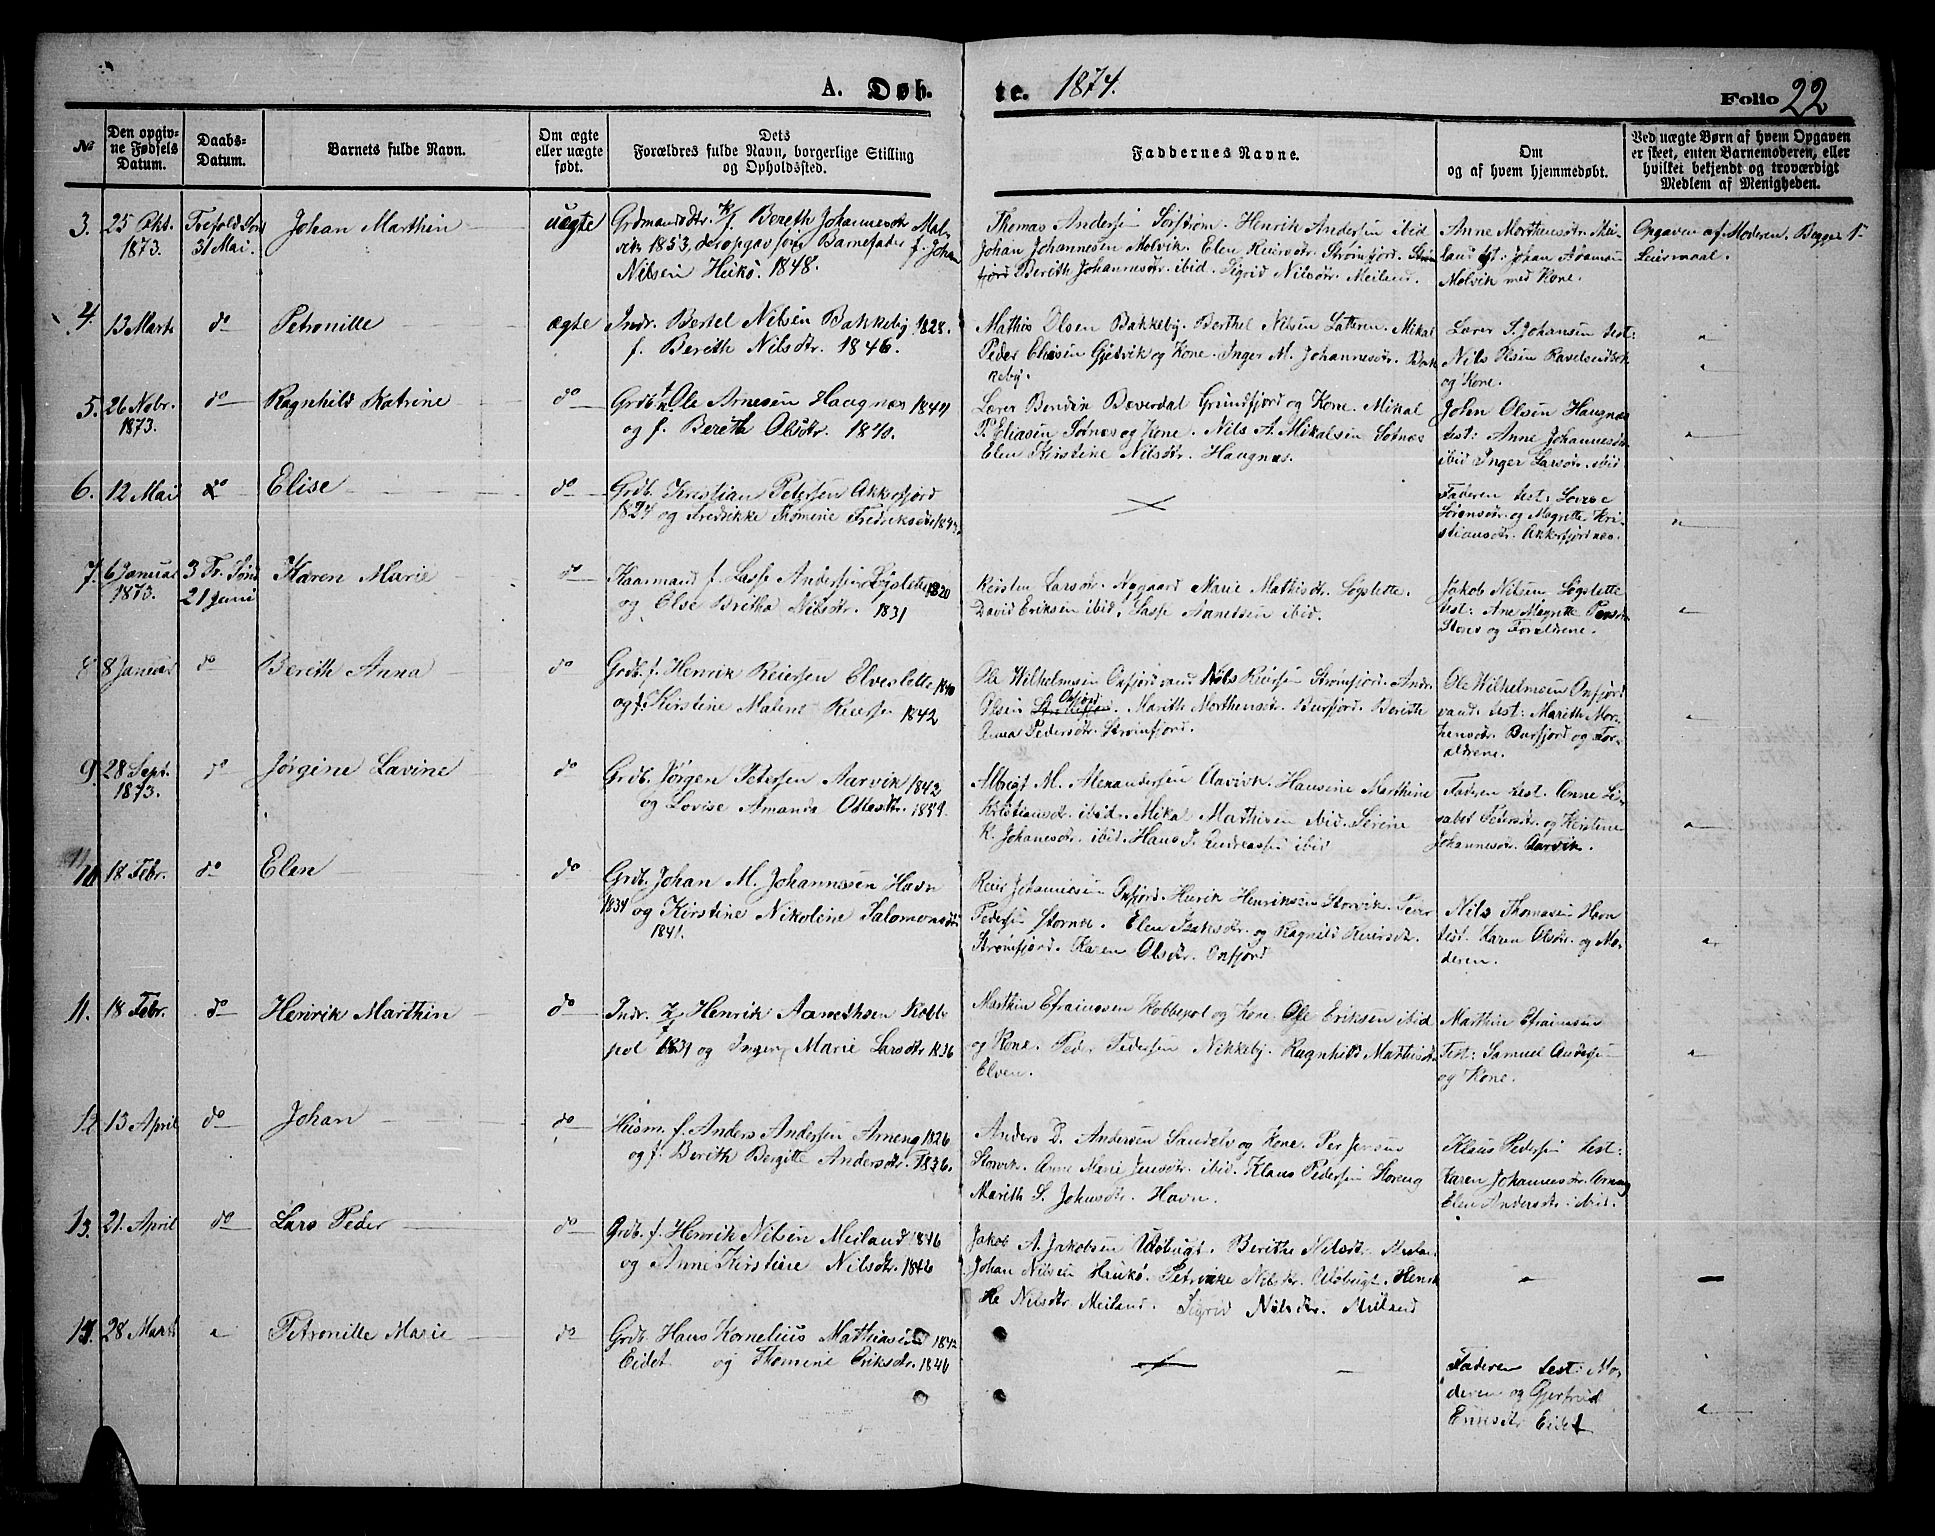 A. Døb. te. 1874. Folio 22
№
Den opgiv-
ne Fødsels
Datum.
Daabs-
Datum.
Barnets fulde Navn.
Om ægte
eller uægte
født.
Dets
Forældres fulde Navn, borgerlige Stilling
og Opholdssted.
Faddernes Navne.
Om
og af hvem hjemmedøbt.
Ved uægte Børn af hvem Opgaven
er skeet, enten Barnemoderen, eller
hvilket bekjendt og troværdigt
Medlem af Menigheden.
3.
25 Okt.
1873.
31 Mai.
Johan Marthin
uægte
Berith Johannesdtr Mal-
vik 1853, der opgav som Barnefader f. Johan
Nilsen Heikø. 1848.
Thomas Andersen Sørstrøm. Henrik Andersen ibid
Johan Johannesen Molvik. Elen Reiersdtr. Strømfjord.
Berith Johannesdtr. ibid. Sigrid Nilsdtr. Meiland.
Anne Morthensdtr. Mei-
land test: Johan Adamsen
Molvik med Kone.
Opgaven af Moderen. Begges 1ste
Leiermaal.
4.
13 Marts
do
Petronille
ægte
Indr. Bertel Nilsen Bakkeby 1828.
f. Berith Nilsdtr. 1846.
Mathis Olsen Bakkeby. Berthel Nilsen Lateren. Mikal
Peder Eliasen Gjøvik og Kone. Inger M. Johannesdtr. Bak-
keby.
Lærer S. Johansen test:
Nils Olsen
og Kone.
5.
26 Nobr.
1873.
do
Ragnhild Katrine
do
Grdb. Ole Arnesen Haugnæs 1844
og f. Berith Olsdtr. 1840.
Lærer Bendik Bæverdal Grundfjord og Kone. Mikal
P. Eliasen Sotnæs og Kone. Nils A. Mikalsen Sotnæs
Elen Kirstine Nilsdtr. Haugnæs.
John Olsen Haugnæs
test: Anne Johannesdtr
ibid Inger Larsdtr. ibid
6.
12 Mai
do
Elise
do
Grdb. Kristian Petersen Akkarfjord
1824 og Fredrikke Thomine Fredriksdtr
Faderen test: Lovise
Sørensdtr. og Magrette Kri-
stiansdtr. Akkarfjordnæs.
7.
6 Januar
1873.
3 Tr. Sønd
21 Juni
Karen Marie
do
Kaarmand f. Lasse Andersen Løgslette 1820
og Else Britha Nilsdtr. 1831
Kirsten Larsdtr. Nygaard Marie Mathisdtr. Løgslette.
David Eriksen ibid. Lasse Aanetsen ibid.
Jakob Nilsen Løgslette
test: Ane Magrette
og Forældrene.
8
8 Januar
do
Berith Anna
do
Grdb. f. Henrik Reiersen Elveslette 1840
og f. Kirstine Maline 1842
Ole Wilhelmsen Oxfjordvand Nils Reiersen Strømfjord. Andr.
Olsen Oxfjord. Marith Morthensdtr. Burfjord. Berith
Anna Pedersdtr. Strømfjord.
Ole Wilhelmsen Oxfjord
vand. test: Marith Mor-
thensdtr. Burfjord og For-
ældrene.
9.
28 Sept.
1873.
do
Jørgine Lavine
do
Grdb. Jørgen Petersen Aarvik 1842
og Lovise Amanda 1839.
Albrigt M. Alexandersen Aarvik. Hansine Marthine
Kristiansdtr. ibid. Mikal Mathisen ibid. Serine
K. Johansdtr. ibid. Hans J. Andreassen ibid
Faderen test. Anne Li-
sabet Pedersdtr. og Kirstine
Johannesdtr. Aarvik.
10
18 Febr.
do
Elen
do
Grdb. Johan M. Johannesen Havn
1834 og Kirstine Nikoline Salomonsdtr
1841.
Reier Johannesen Oxfjord. Henrik Henriksen Storvik. Peder
Pedersen Stornæs. Elen Isaksdtr. og Ragnild Reiersdtr.
Strømfjord. Karen Olsdtr. Oxfjord
Nils Thomasen Havn
test. Karen Olsdtr. og Mo-
deren.
11.
18 Febr.
do
Henrik Marthin
do
Indr. Henrik Aanethsen Kobbe-
pol 1831 og Inger Marie Larsdtr 1836
Marthin Efraimsen Kobbepol og Kone. Ole Eriksen ibid
og Kone. Peder Pedersen Nikkeby. Ragnhild Mathisdtr
Elven.
Marthin Efraimsen
Test: Samuel Andersen
og Kone.
12
13 April
do
Johan
do
Husm. f. Anders Andersen Arneng 1826
og f. Berith Bergitte Andersdtr. 1836.
Anders D. Andersen Sandelv og Kone. Per Jensen
Storvik. Anne Marie Jensdtr. ibid. Klaus Pedersen Storeng
Marith S. Johnsdtr. Havn.
Klaus Pedersen test:
Karen Johannesdtr. Arneng
Elen Andersdtr. ibid.
13.
21. April
do
Lars Peder
do
Grdb. f. Henrik Nilsen Meiland 1846
og Anne Kirstine Nilsdtr. 1846
Jakob A. Jakobsen Uløbugt. Berithe Nilsdtr.
Johan Nilsen Haukø. Petrikke Nilsdtr. Uløbugt. Henrik
Nilsdtr Meiland. Sigrid Nilsdtr. Meiland
28 Marts
Petronille Marie
do
Grdb. Hans Kornelius Mathiasen 1842
Eidet. og Thomine Eriksdtr. 1840
Faderen test: Mo-
deren og Gjertrud
Eriksdtr Eidet